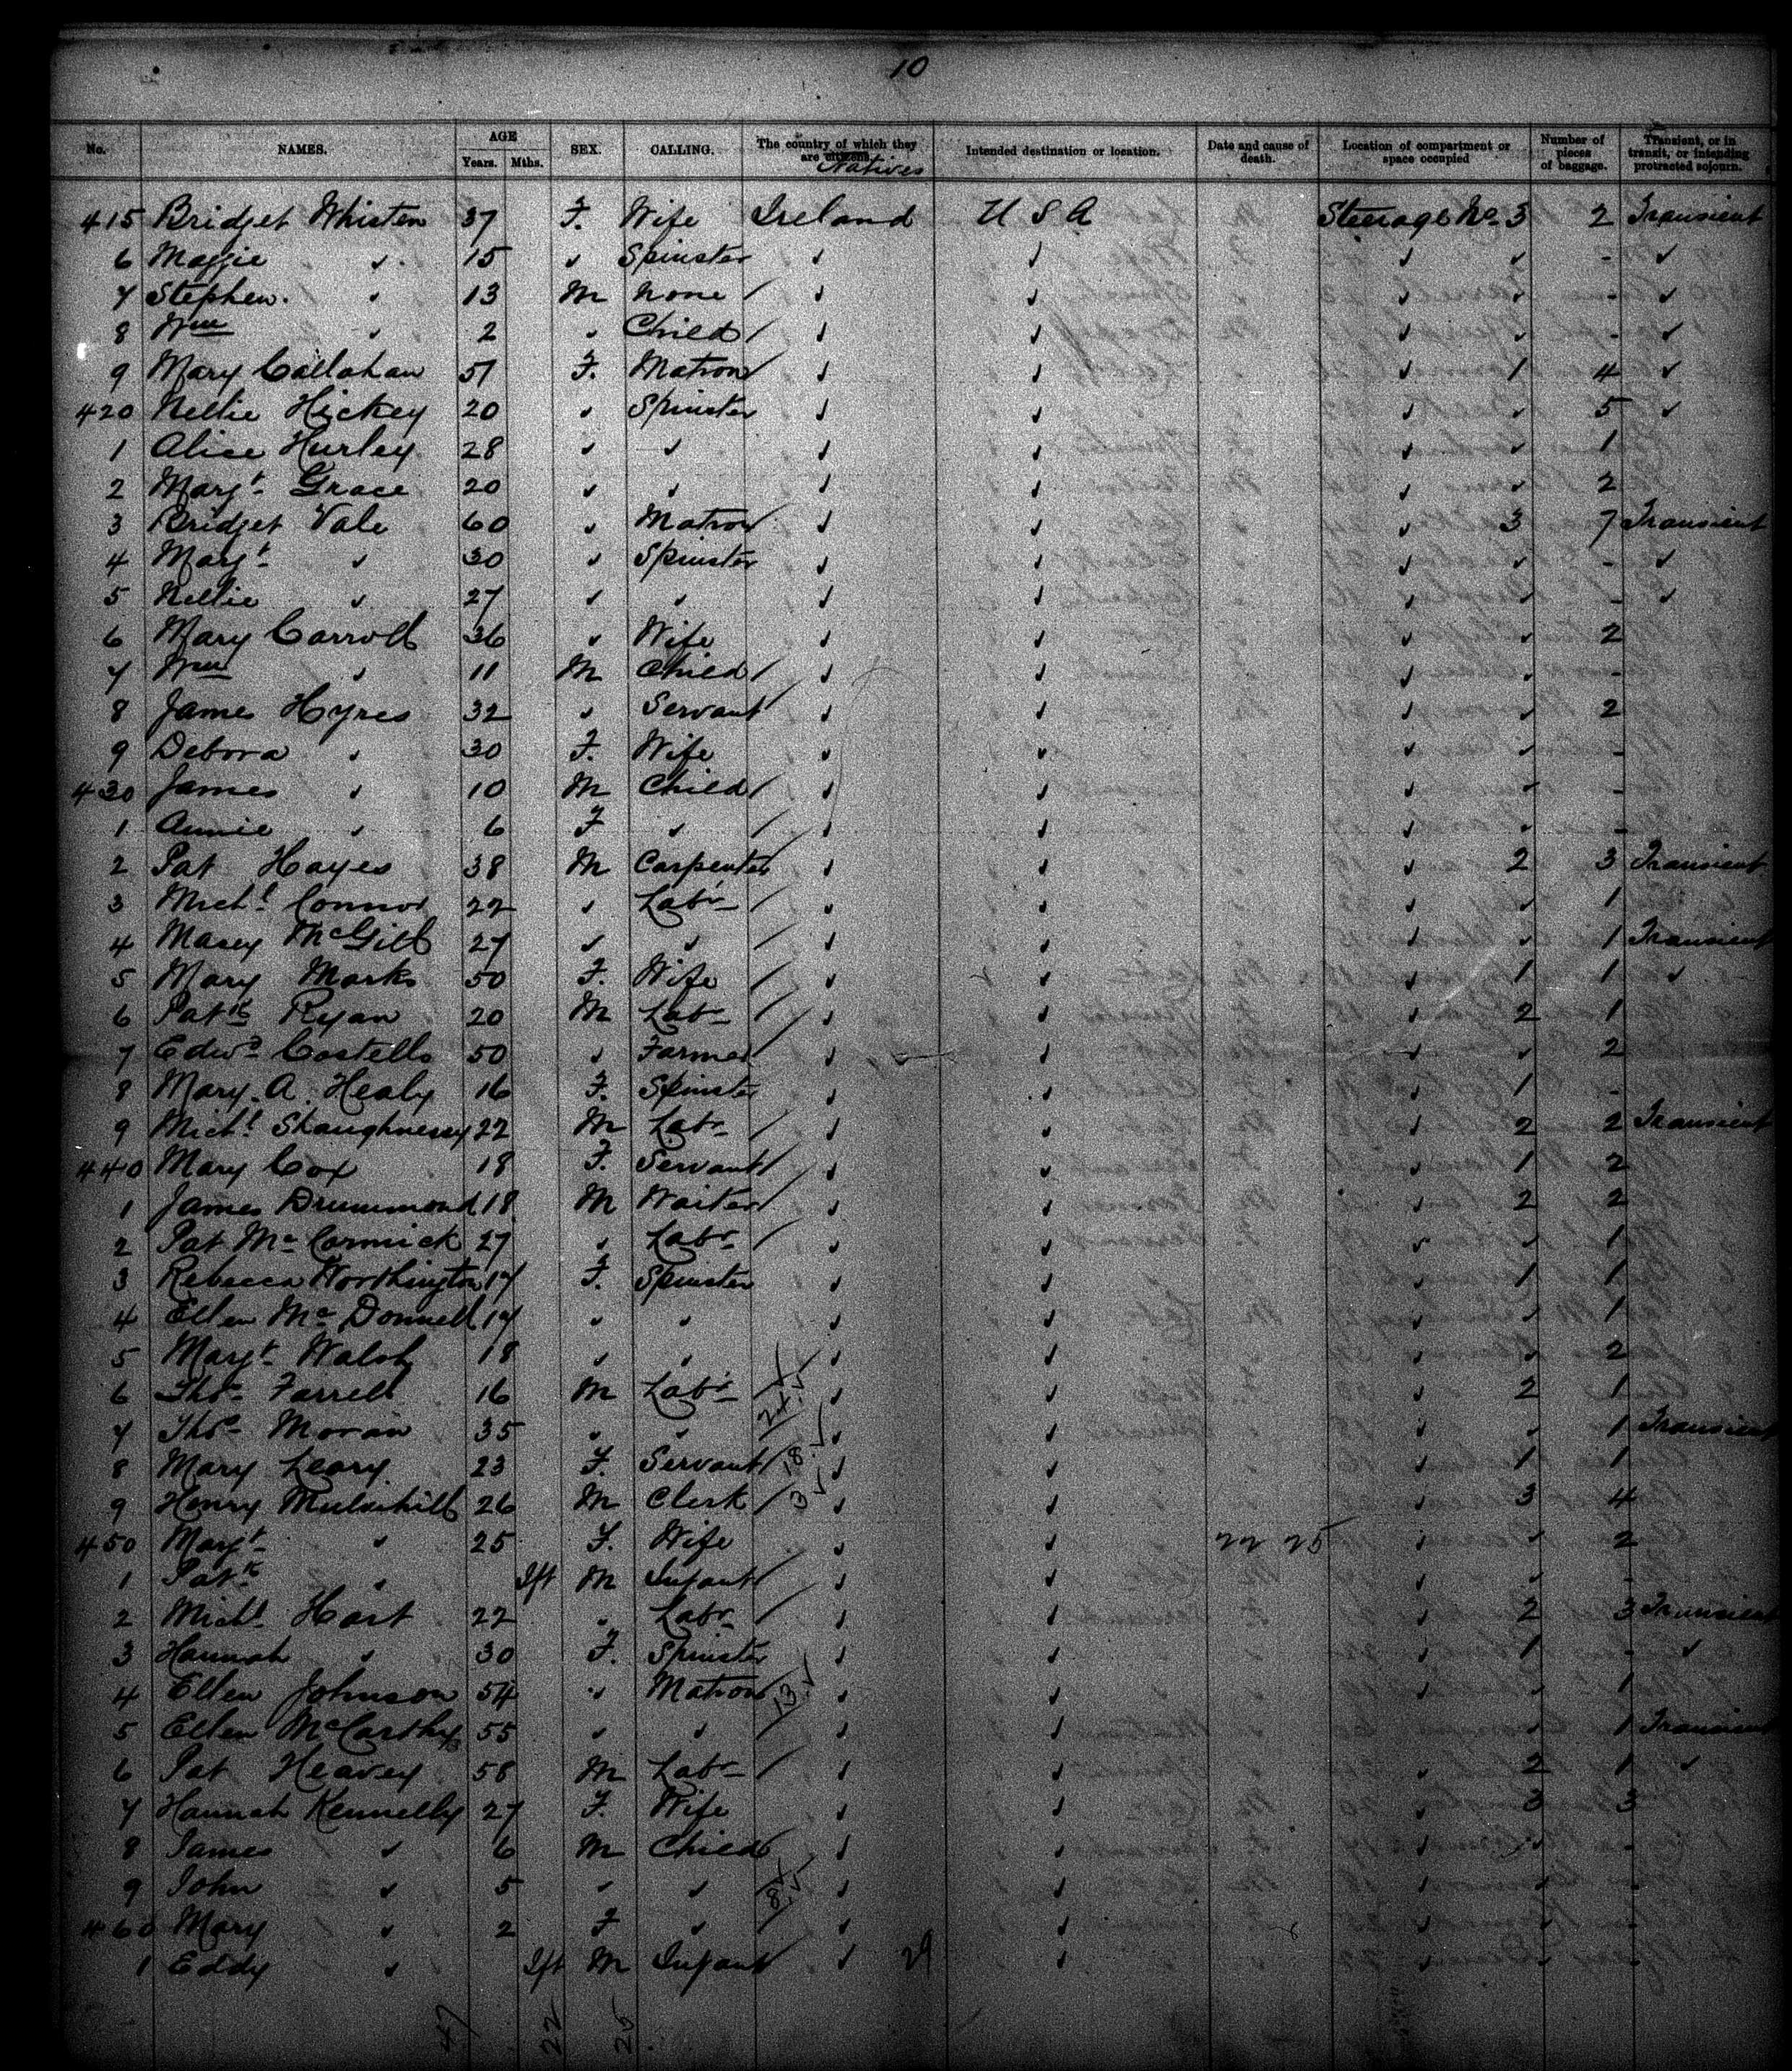 10
No. NAMES. AGE Years. Mths. SEX. CALLING. The country of which they are citizens. Natives Intended destination or location. Date and cause of death. Location of compartment or space occupied Number of pieces of baggage. Transient, or in transit, or intending protracted sojourn.
415 Bridget Whisten 37 F. Wife Ireland U S A Steerage No. 3 2 Transient
6 Maggie ✓ 15 ✓ Spinster ✓ ✓ ✓ ✓ - ✓
7 Stephen. ✓ 13 M None / ✓ ✓ ✓ ✓ - ✓
8 Wm ✓ 2 ✓ Child / ✓ ✓ ✓ ✓ - ✓
9 Mary Callahan 51 F. Matron / ✓ ✓ ✓ 1 4 ✓
420 Nellie Hickey 20 ✓ Spinster ✓ ✓ ✓ ✓ 5 ✓
1 Alice Hurley 28 ✓ ✓ ✓ ✓ ✓ ✓ 1
2 Margt. Grace 20 ✓ ✓ ✓ ✓ ✓ ✓ 2
3 Bridget Vale 60 ✓ Matron ✓ ✓ ✓ 3 7 Transient
4 Margt ✓ 30 ✓ Spinster ✓ ✓ ✓ ✓ - ✓
5 Nellie ✓ 27 ✓ ✓ ✓ ✓ ✓ ✓ - ✓
6 Mary Carroll 36 ✓ Wife ✓ ✓ ✓ ✓ 2
7 Wm ✓ 11 M Child / ✓ ✓ ✓ ✓ -
8 James Hynes 32 ✓ Servant / ✓ ✓ ✓ ✓ 2
9 Debora ✓ 30 F. Wife ✓ ✓ ✓ ✓ -
430 James ✓ 10 M Child / ✓ ✓ ✓ ✓ -
1 Annie ✓ 6 F ✓ / ✓ ✓ ✓ ✓ -
2 Pat Hayes 38 M Carpenter ✓ ✓ ✓ 2 3 Transient
3 Michl. Connor 22 ✓ Labr / ✓ ✓ ✓ ✓ 1
4 Masey McGill 27 ✓ ✓ / ✓ ✓ ✓ ✓ 1 Transient
5 Mary Marks 50 F. Wife / ✓ ✓ ✓ 1 1 ✓
6 Patk Ryan 20 M Labr / ✓ ✓ ✓ 2 1
7 Edwd Costello 50 ✓ Farmer / ✓ ✓ ✓ ✓ 2
8 Mary. A. Healy 16 F. Spinster ✓ ✓ ✓ 1 -
9 Michl. Shaughnessy 22 M Labr / ✓ ✓ ✓ 2 2 Transient
440 Mary Cox 18 F. Servant / ✓ ✓ ✓ 1 2
1 James Drummond 18 M Waiter / ✓ ✓ ✓ 2 2
2 Pat McCormick 27 ✓ Labr / ✓ ✓ ✓ ✓ 1
3 Rebecca Worthington 17 F. Spinster ✓ ✓ ✓ 1 1
4 Ellen McDonnell 17 ✓ ✓ ✓ ✓ ✓ ✓ 1
5 Margt. Walsh 18 ✓ ✓ ✓ ✓ ✓ ✓ 2
6 Thos. Farrell 16 M Labr / 24 ✓ ✓ ✓ ✓ 2 1
7 Thos. Moran 35 ✓ ✓ / ✓ ✓ ✓ ✓ 1 Transient
8 Mary Leary 23 F. Servant / 18 ✓ ✓ ✓ ✓ 1 1
9 Henry Mulvihill 26 M Clerk / 3 ✓ ✓ ✓ ✓ 3 4
450 Margt. ✓ 25 F. Wife ✓ ✓ 22 25 ✓ ✓ 2
1 Patk ✓ Ift M Infant / ✓ ✓ ✓ ✓ -
2 Michl Hart 22 ✓ Labr / ✓ ✓ ✓ 2 3 Transient
3 Hannah ✓ 30 F. Spinster ✓ ✓ ✓ 1 - ✓
4 Ellen Johnson 54 ✓ Matron 13 ✓ ✓ ✓ ✓ ✓ 1
5 Ellen McCarthy 55 ✓ ✓ / ✓ ✓ ✓ ✓ 1 Transient
6 Pat Heavey 58 M Labr / ✓ ✓ ✓ 2 1 ✓
7 Hannah Kennelly 27 F. Wife ✓ ✓ ✓ 3 3
8 James ✓ 6 M Child ✓ ✓ ✓ ✓ -
9 John ✓ 5 ✓ ✓ 8 ✓ ✓ ✓ ✓ ✓ -
460 Mary ✓ 2 F ✓ / ✓ ✓ ✓ ✓ -
1 Eddy ✓ Ift M Infant ✓ 29 ✓ ✓ ✓ -
47 22 25